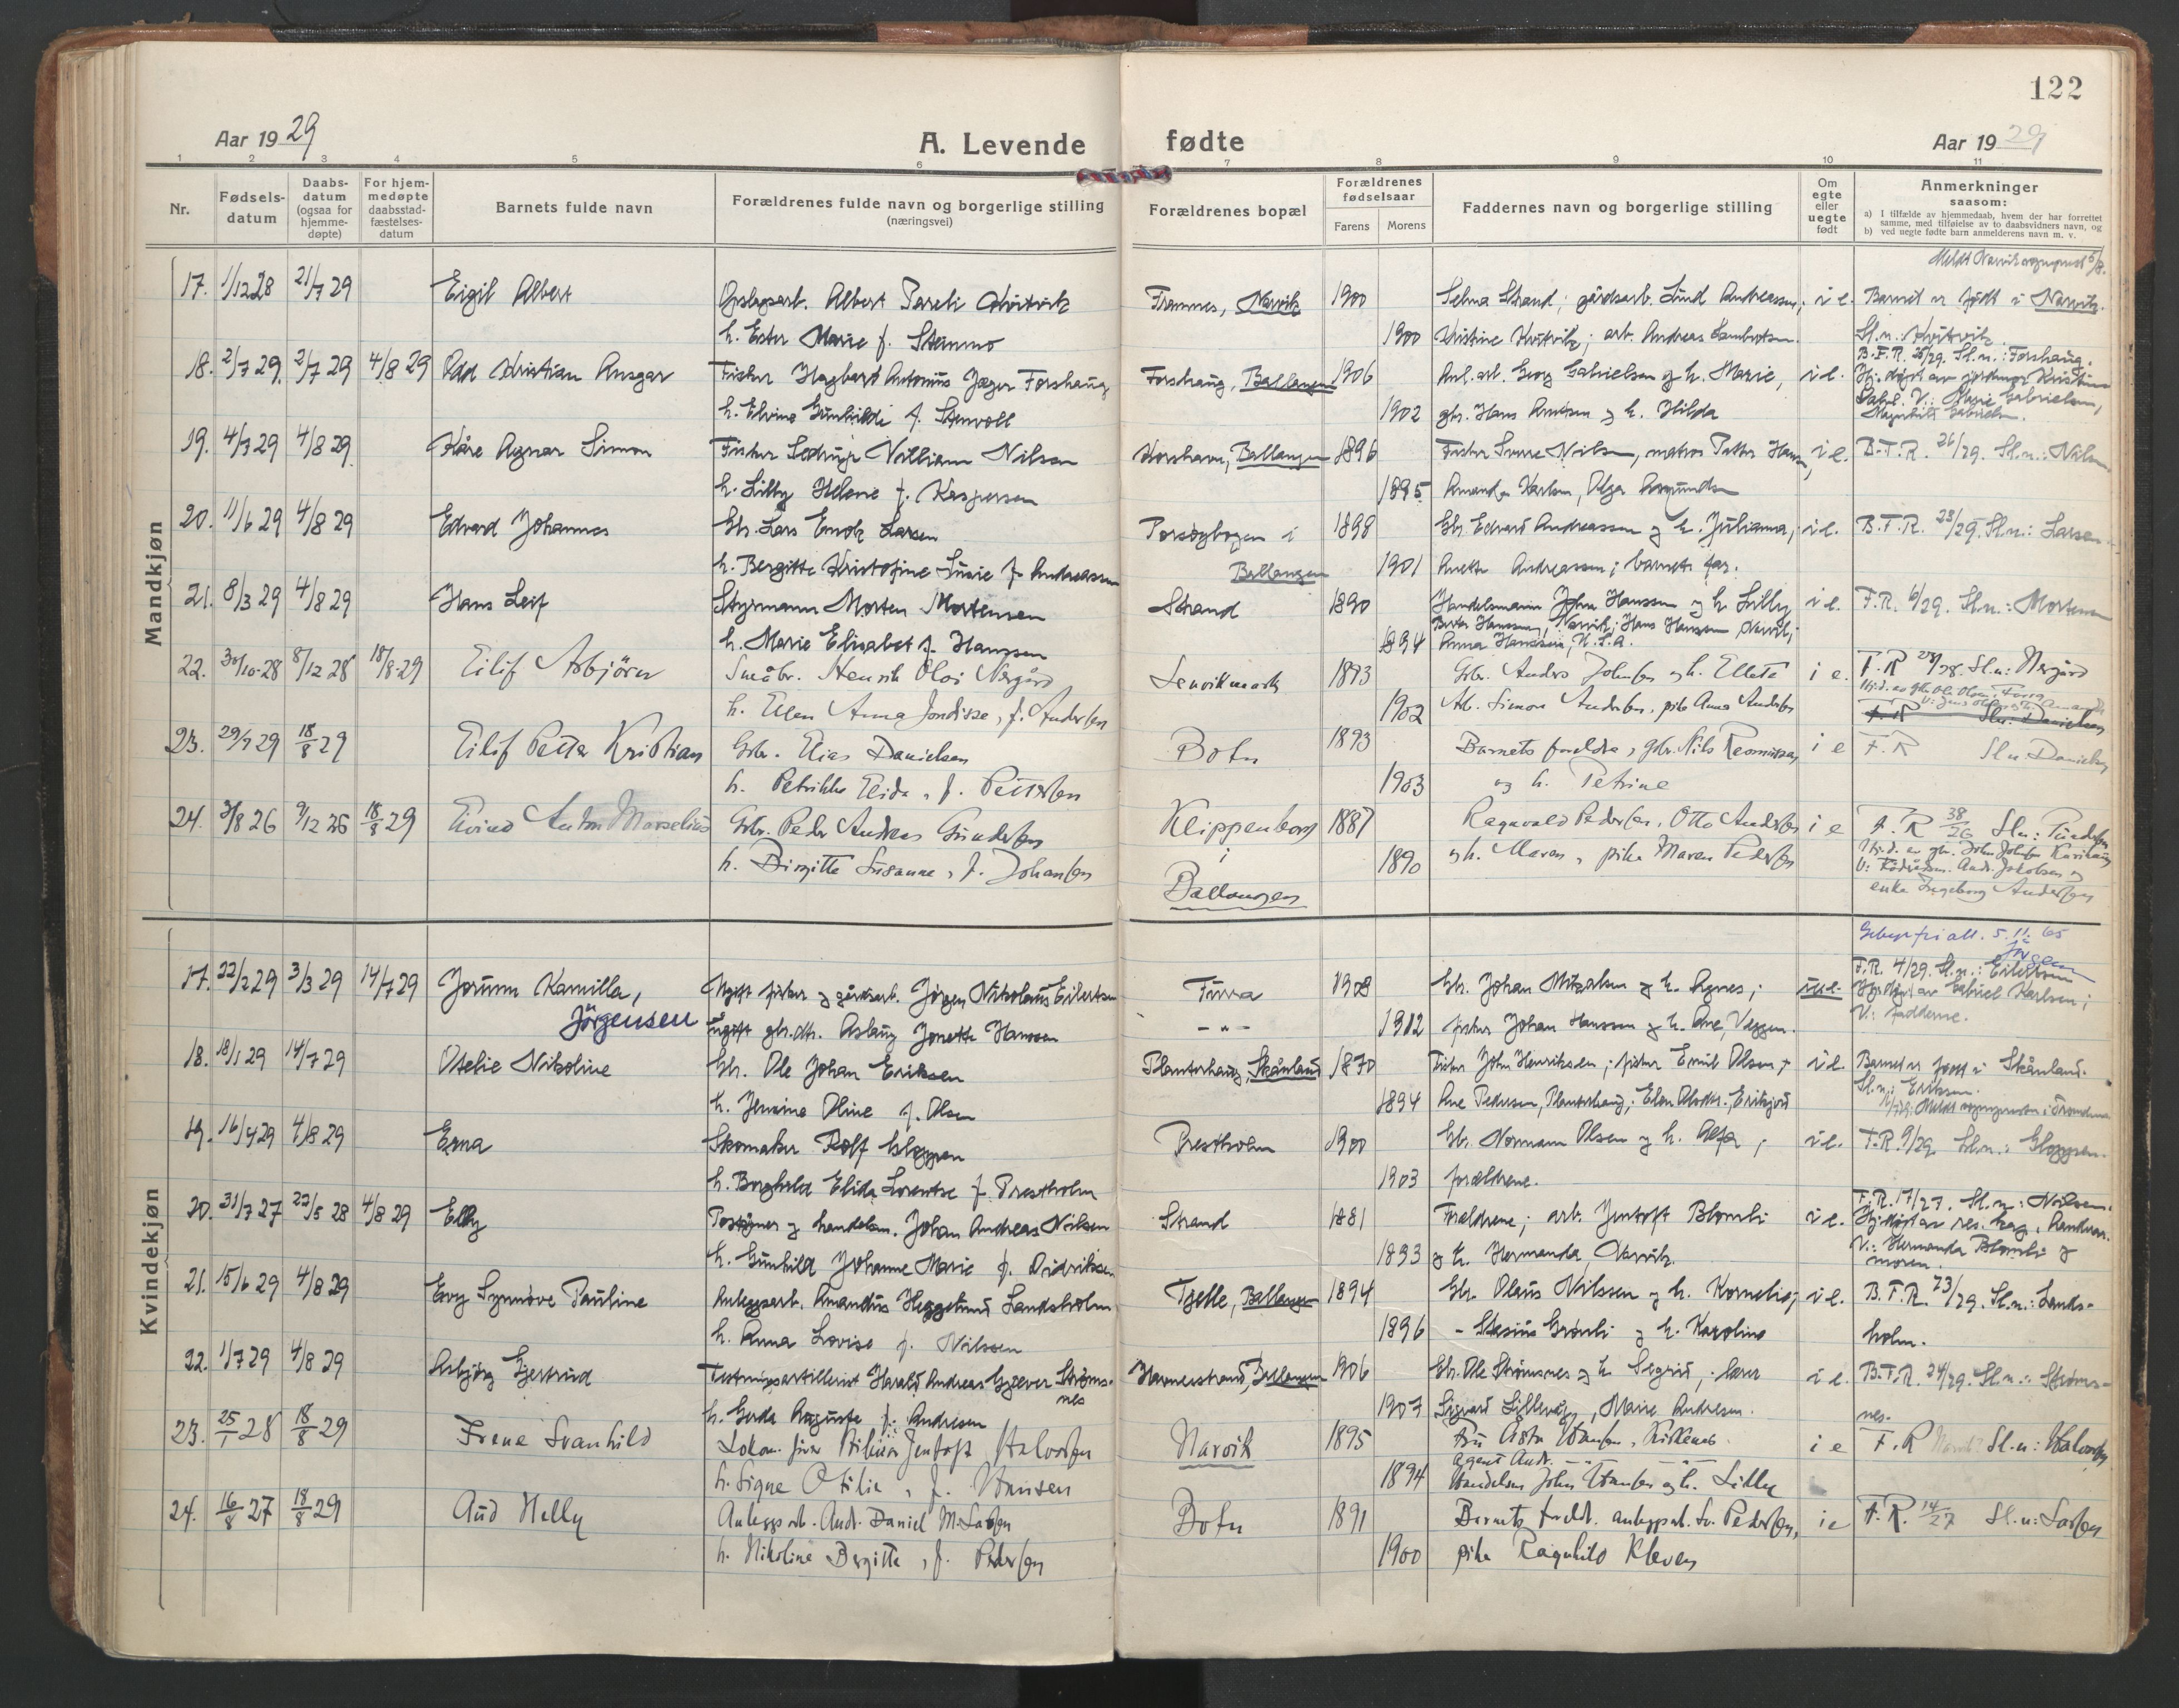 122
Aar 1929
A. Levende
fødte
Aar 1929
1 2 3 4 5 6 7 8 9 10 11
Nr.
Fødsels-
datum
Daabs-
datum
(ogsaa for
hjemme-
døpte)
For hjem-
medøpte
daabsstad-
fæstelses-
datum
Barnets fulde navn
Forældrenes fulde navn og borgerlige stilling
(næringsvei)
Forældrenes bopæl
Forældrenes
fødselsaar
Farens Morens
Faddernes navn og borgerlige stilling
Om
egte
eller
uegte
født
Anmerkninger
saasom:
a) I tilfælde av hjemmedaab, hvem der har forrettet
samme, med tilføielse av to daabsvidners navn, og
b) ved uegte fødte barn anmelderens navn m. v.
Mandkjøn
17. 1/12 28 21/7 29 Eigil Albert Albert Pareli Kvitvik Framnes, Narvik 1900 Selma Strand; gårdsarb. Lind Andreassen; i e. Barnet er født i Narvik.
h. Ester Marie f. Stenmo 1900 Kristine Kvitvik; arb. Andreas Lambertsen. Sl.n.: Kvitvik.
18. 2/7 29. 2/7 29 4/8 29 Odd Kristian Ansgar Fisker Hagbart Antonius Jæger Forshaug Forshaug, Ballangen 1906 Anl. arb. Georg Gabrielsen og h. Marie, i e. B.F.R. 25/29. Sl.n.: Forshaug.
Hj.døpt av jordmor Kristine
h. Elvine Gunhilde f. Stenvoll 1902 gbr. Hans Arntsen og h. Hilda V.: Marie Gabrielsen,
Magnhild Gabrielsen.
19. 4/7 29 4/8 29. Kåre Agnar Simon Fisker Villiam Nilsen Korshavn, Ballangen 1896 Fisker Sverre Nilsen, matros Petter Hansen, i e. B.F.R. 26/29. Sl.n.: Nilsen.
h. Lilly Helene f. Kaspersen 1895 Amanda Karlsen, Olga Amundsen
20. 11/6 29 4/8 29 Edvard Johannes Gbr. Lars Enok Larsen i 1898 Gbr. Edvard Andreassen og h. Julianna; i e. B.F.R. 23/29. Sl.n.: Larsen.
h. Bergitte Kristofine Lusie f. Andreassen Ballangen 1901 Anette Andreassen; barnets far.
21. 8/3 29 4/8 29 Hans Leif Styrmann Morten Mortensen Strand 1890 Handelsmann John Hanssen og h. Lilly i e. F.R. 6/29. Sl.n.: Mortensen
Hanssen, Narvik; Hans Hanssen, Narvik;
h. Marie Elisabet f. Hanssen 1894 Anna Hanssen, U.S.A.
22. 30/10-28 8/12 28 18/8-29 Eilif Asbjörn Småbr. Henrik Olai Nergård Lenvikmark 1893 Gbr. Anders Johnsen og h. Ellata i e. F.R 28/28. Sl.n: Nergård
h. Ellen Anna Jondisse, f. Andersen 1902 Arb. Simon Andersen, pike Anna Andersen
23. 29/7 29 18/8 29 Eilif Petter Kristian Gbr. Elias Danielsen Botn 1893 Barnets foreldre, gbr. Nils Rasmussen i e F.R Sl.n. Danielsen
h. Petrikke Elida, f. Pettersen 1903 og h. Petrine
24. 3/8 26 9/12 26 18/8 29 Eivind Anton Marselius Gbr. Peder Andreas Gundersen Klippenborg 1887 Ragnvald Pedersen, Otto Andersen i e F.R 38/26 Sl.n: Gundersen
h. Birgitte Susanne, f. Johansen i
Ballangen 1890 og h. Maren, pike Maren Pedersen Hj.d. av gbr. John Johnsen
Andr. Jakobsen og
enke Ingeborg Andersen
Kvindekjøn
5.11.65
17. 22/2 29 3/3 29 14/7 29 Jorunn Kamilla, Ugift fisker og gårdsarb. Jörgen Nikolaus Eilertsen Furra 1908 Gbr. Johan Mikalsen og h. Agnes; u.e. F.R. 4/29. Sl.n.: Eilertsen
Hj.døpt av Gabriel Karlsen;
Jörgensen ugift gbr.dtr. Aslaug Jonette Hanssen -"- 1912 fisker Johan Hanssen og h. Ane, Veggen. V.: fadderne.
18. 18/1 29 14/7 29 Otelie Nikoline Gbr. Ole Johan Eriksen Planterhaug, Skånland 1870 Fisker John Henriksen; fisker Emil Olsen; i e. Barnet er født i Skånland.
h. Jensine Oline f. Olsen 1894 Ane Pedersen, Planterhaug; Sl.n.: Eriksen.
19. 16/4 29 4/8 29 Erna Skomaker Rolf Gloppen Prestholm 1900 Gbr. Normann Olsen og h. Alfa; i e. F.R. 9/29 Sl.n.: Gloppen.
h. Borghild Elida Lorentse f. Prestholm 1903 foreldrene.
20. 31/7 27 22/5 28 4/8 29 Elly og handelsm. Johan Andreas Nilsen Strand 1881 Foreldrene; arb. Jentoft Blomli i e. F.R. 17/27. Sl.n.: Nilsen.
h. Gunhild Johanne Marie f. Didriksen 1893 og h. Hermanda, Narvik. V.: Hermanda Blomli og
moren.
21. 15/6 29 4/8 29 Evy Synnöve Pauline Anleggsarb. Amandus Heggelund Landsholm Tjelle, Ballangen 1894 Gbr. Olaus Nilssen og h. Kornelie; i e. B.F.R. 23/29. Sl.n.: Lands-
h. Anna Lovise f. Nilssen 1896 - Stasius Grönli og h. Karoline holm.
22. 1/7 29 4/8 29 Asbjörg Gjertrud Festningsartillerist Harald Andreas Gjæver Ströms-
nes Hamnestrand, Ballangen 1906 Gbr. Ole Strömsnes og h. Segrid, i e. B.F.R. 24/29. Sl.n.: Ströms-
h. Gerda Auguste f. Andresen 1907 Sigvard Lillevåg, Marie Andresen. nes.
23. 25/1 28 18/8 29 Irene Svanhild Jentoft Halvorsen Narvik 1895 Fru Asta Hansen, Kirkenes i e F.R Sl.n: Halvorsen
Agent Andr. -"-
h. Signe Otilie, f. Hansen 1894 Handelsm John Hansen og h. Lilly
24. 16/8 27 18/8 29 Aud Nelly Anleggsarb. Andr. Daniel M. Larsen Botn 1891 Barnets foreldr. anleggsarb. Pedersen, i e F.R. 14/27 Sl.n: Larsen
h. Nikoline Bergitte, f. Pedersen 1900 pike Ragnhild Kleven